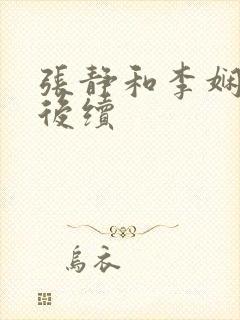 張靜和李娴
後續
烏衣